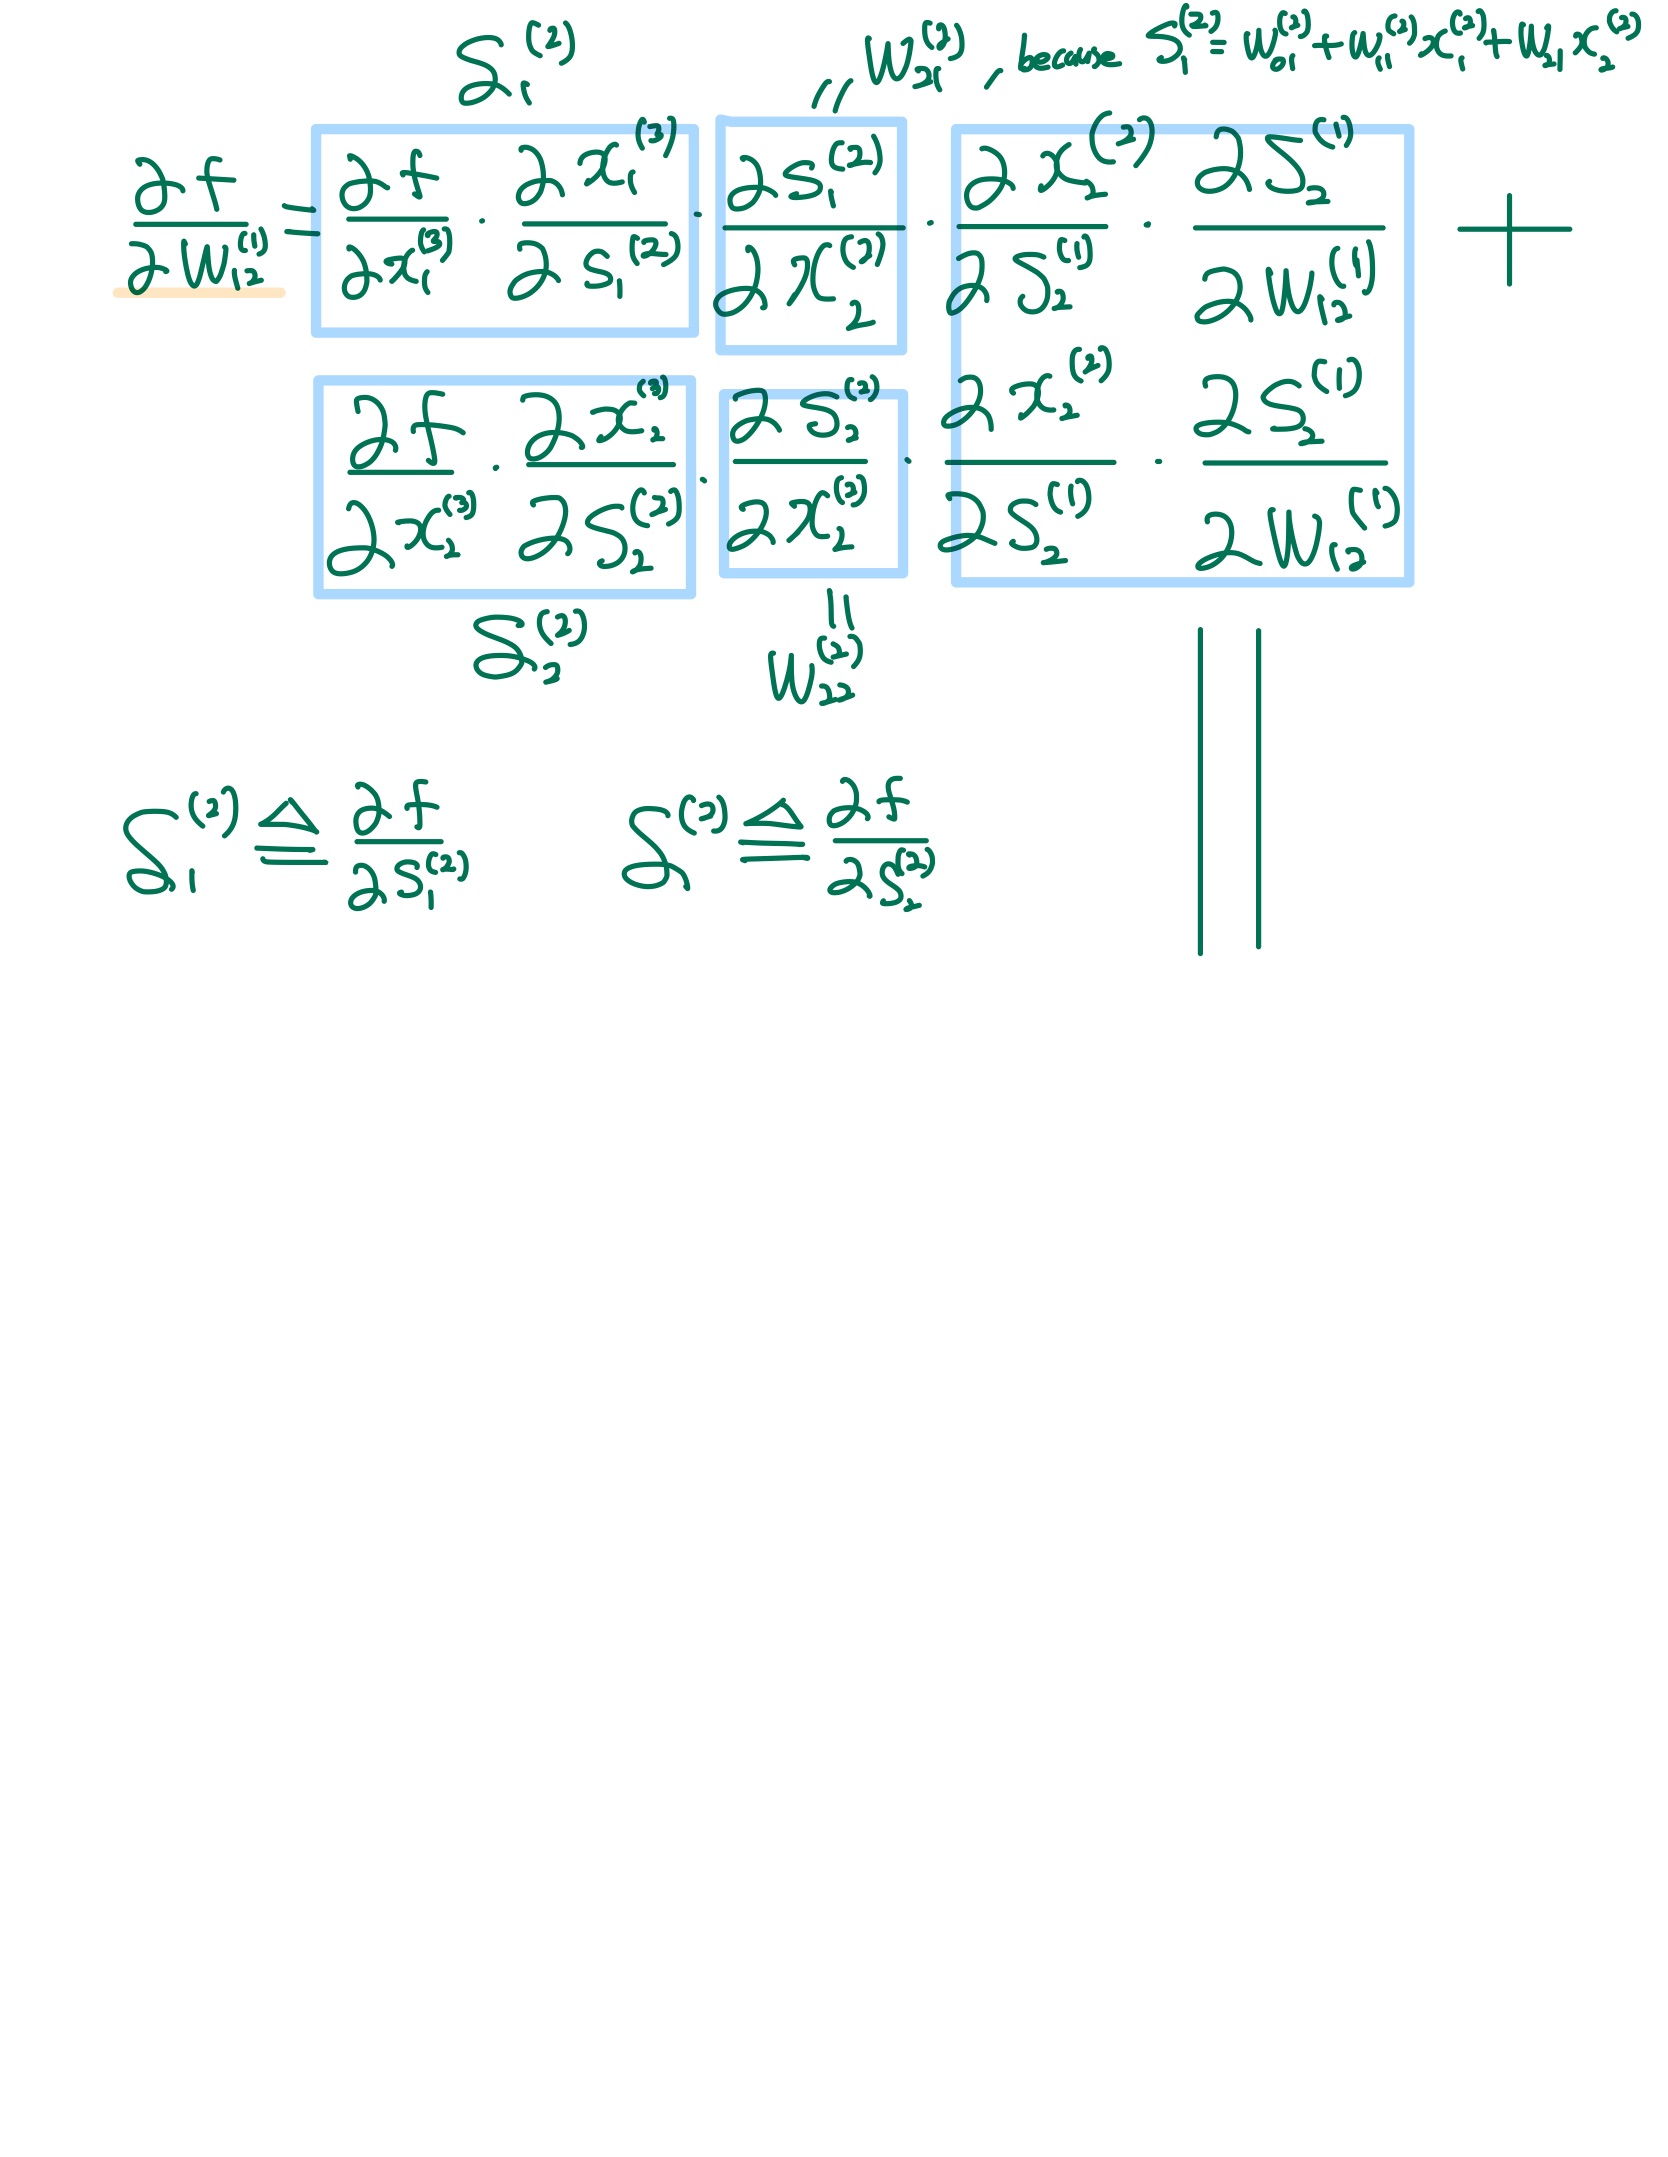 δ₁⁽²⁾ = W₂₁⁽²⁾, because S₁⁽²⁾ = W₀₁⁽²⁾ + W₁₁⁽²⁾ x₁⁽²⁾ + W₂₁ x₂⁽²⁾
∂f/∂W₁₂⁽¹⁾ = ∂f/∂x₁⁽³⁾ · ∂x₁⁽³⁾/∂S₁⁽²⁾ · ∂S₁⁽²⁾/∂x₂⁽²⁾ · ∂x₂⁽²⁾/∂S₂⁽¹⁾ · ∂S₂⁽¹⁾/∂W₁₂⁽¹⁾ +
∂f/∂x₂⁽³⁾ · ∂x₂⁽³⁾/∂S₂⁽²⁾ · ∂S₂⁽²⁾/∂x₂⁽²⁾ · ∂x₂⁽²⁾/∂S₂⁽¹⁾ · ∂S₂⁽¹⁾/∂W₁₂⁽¹⁾
δ₂⁽²⁾ = W₂₂⁽²⁾
δ₁⁽²⁾ ≜ ∂f/∂S₁⁽²⁾ δ⁽²⁾ ≜ ∂f/∂S₂⁽²⁾